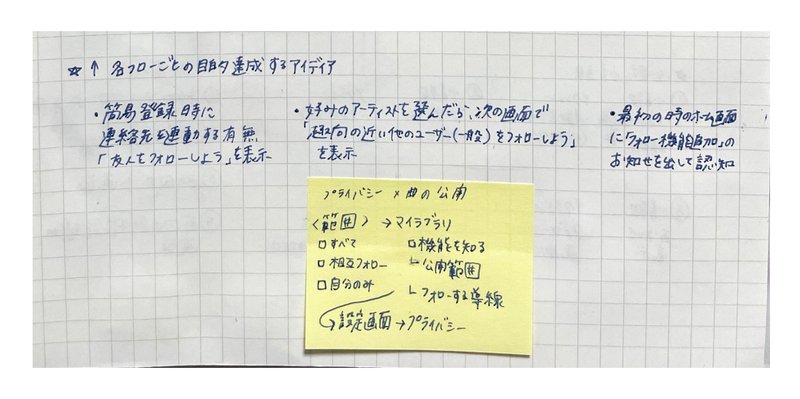 ☆↑各フローごとの目的達成するアイディア
・簡易登録時に
連絡先を連動する有無
「友人をフォローしよう」を表示
・好みのアーティストを選んだら、次の画面で
「趣向の近い他のユーザー(一般)をフォローしよう」
を表示
・最初の時のホーム画面
に「フォロー機能追加」の
お知らせを出して認知
プライバシー × 曲の公開
〈範囲〉→マイラブラリ
□すべて
□相互フォロー
□自分のみ
□機能を知る
└公開範囲
└フォローする導線
→設定画面→プライバシー